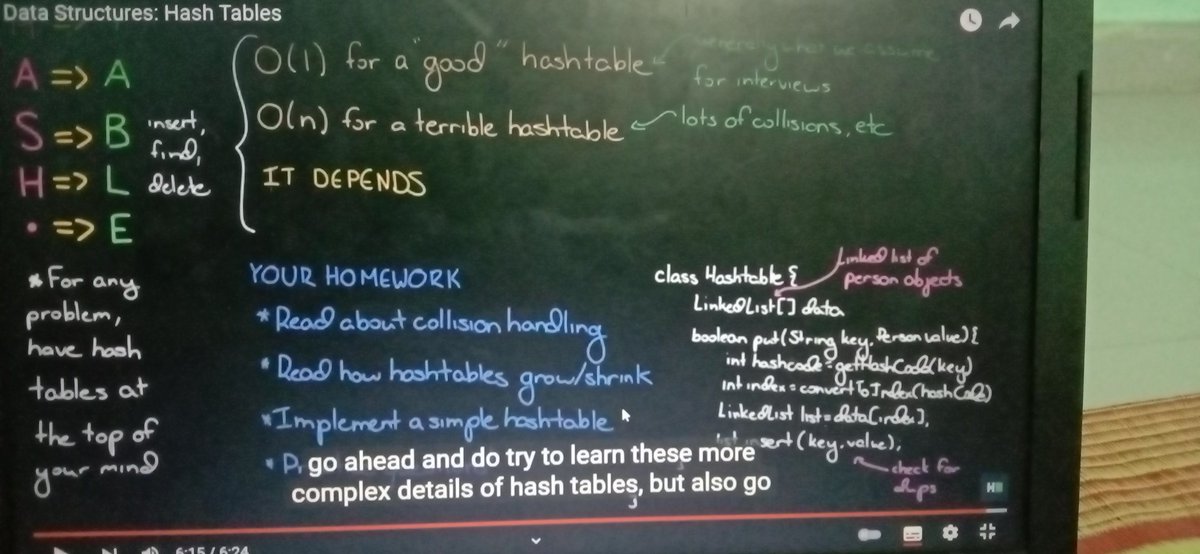 Data Structures: Hash Tables
A => A
S => B
H => L
• => E
insert,
find,
delete
O(1) for a "good" hashtable
what we assume
for interviews
O(n) for a terrible hashtable
lots of collisions, etc
IT DEPENDS
* For any
problem,
have hash
tables at
the top of
your mind
YOUR HOMEWORK
* Read about collision handling
* Read how hashtables grow/shrink
* Implement a simple hashtable
* P
go ahead and do try to learn these more
complex details of hash tables, but also go
Linked list of
person objects
class Hashtable {
LinkedList[] data
boolean put(String key, Person value) {
int hashcode = getHashCode(key)
int index = convertToIndex(hashCode)
LinkedList list = data[index];
insert(key, value);
check for
dups
H
6:15 / 6:24